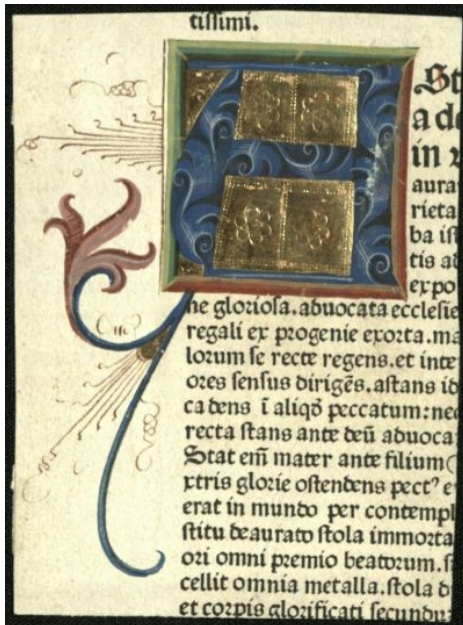 tissimi.
St
a de
in v
aura
rieta
ba ist
tis ad
expo
ne gloriosa. aduocata ecclesie
regali ex progenie exorta. ma
lorum se recte regens. et inte
ores sensus dirigēs. astans id
ca dens ī aliqđ peccatum: nec
recta stans ante deū aduoca
Stat em̄ mater ante filium
xtris glorie ostendens pectꝰ e
erat in mundo per contempl
stitu deaurato stola immorta
ori omni premio beatorum. st
cellit omnia metalla. stola d
et corpis glorificati secundu